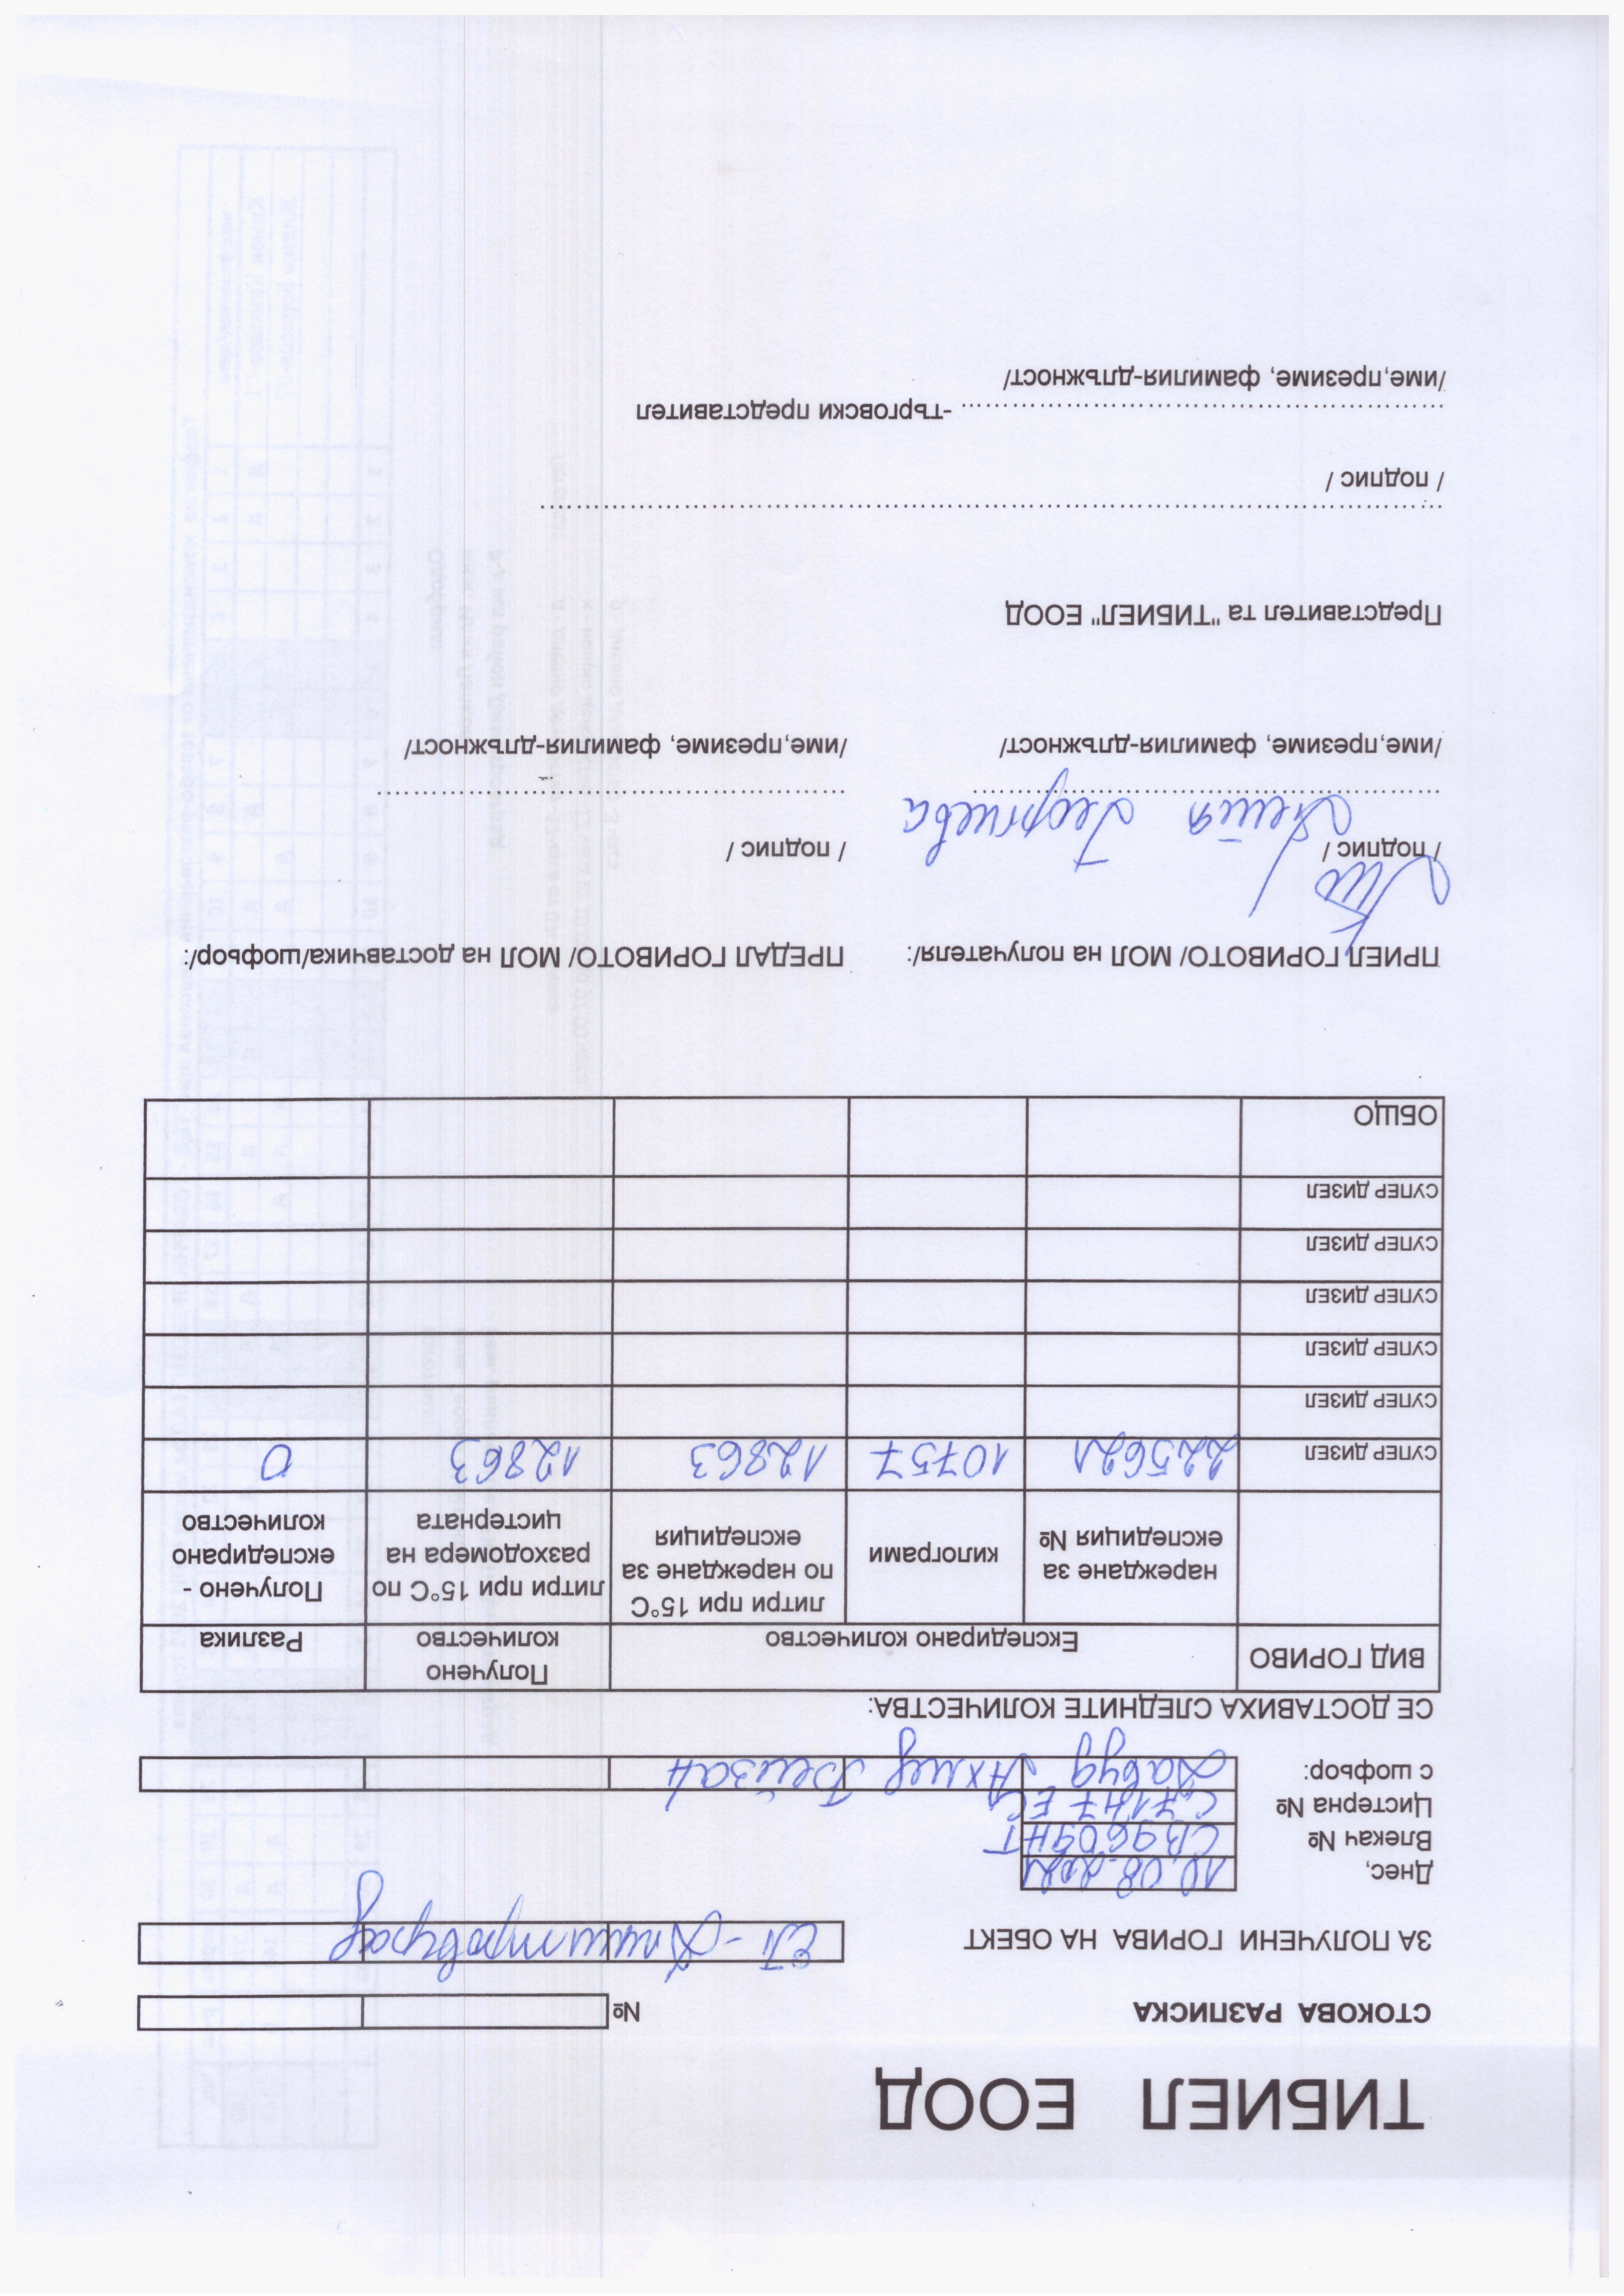 ТИБИЕЛ ЕООД
СТОКОВА РАЗПИСКА №
ЗА ПОЛУЧЕНИ ГОРИВА НА ОБЕКТ ЕП-Димитровград
Днес, 10.08.2021
Влекач № СВ9609НТ
Цистерна №
с шофьор: Давуд Ахмед Бейзат
СЕ ДОСТАВИХА СЛЕДНИТЕ КОЛИЧЕСТВА:
ВИД ГОРИВО Експедирано количество Получено количество Разлика
нареждане за експедиция № килограми литри при 15°С по нареждане за експедиция литри при 15°С по разходомера на цистерната Получено - експедирано количество
СУПЕР ДИЗЕЛ 225621 10757 12863 12863 0
СУПЕР ДИЗЕЛ
СУПЕР ДИЗЕЛ
СУПЕР ДИЗЕЛ
СУПЕР ДИЗЕЛ
СУПЕР ДИЗЕЛ
ОБЩО
ПРИЕЛ ГОРИВОТО/ МОЛ на получателя/: ПРЕДАЛ ГОРИВОТО/ МОЛ на доставчика/шофьор/:
/ подпис / / подпис /
Георгиева
/име,презиме, фамилия-длъжност/ /име,презиме, фамилия-длъжност/
Представител та "ТИБИЕЛ" ЕООД
/ подпис /
-търговски представител
/име,презиме, фамилия-длъжност/